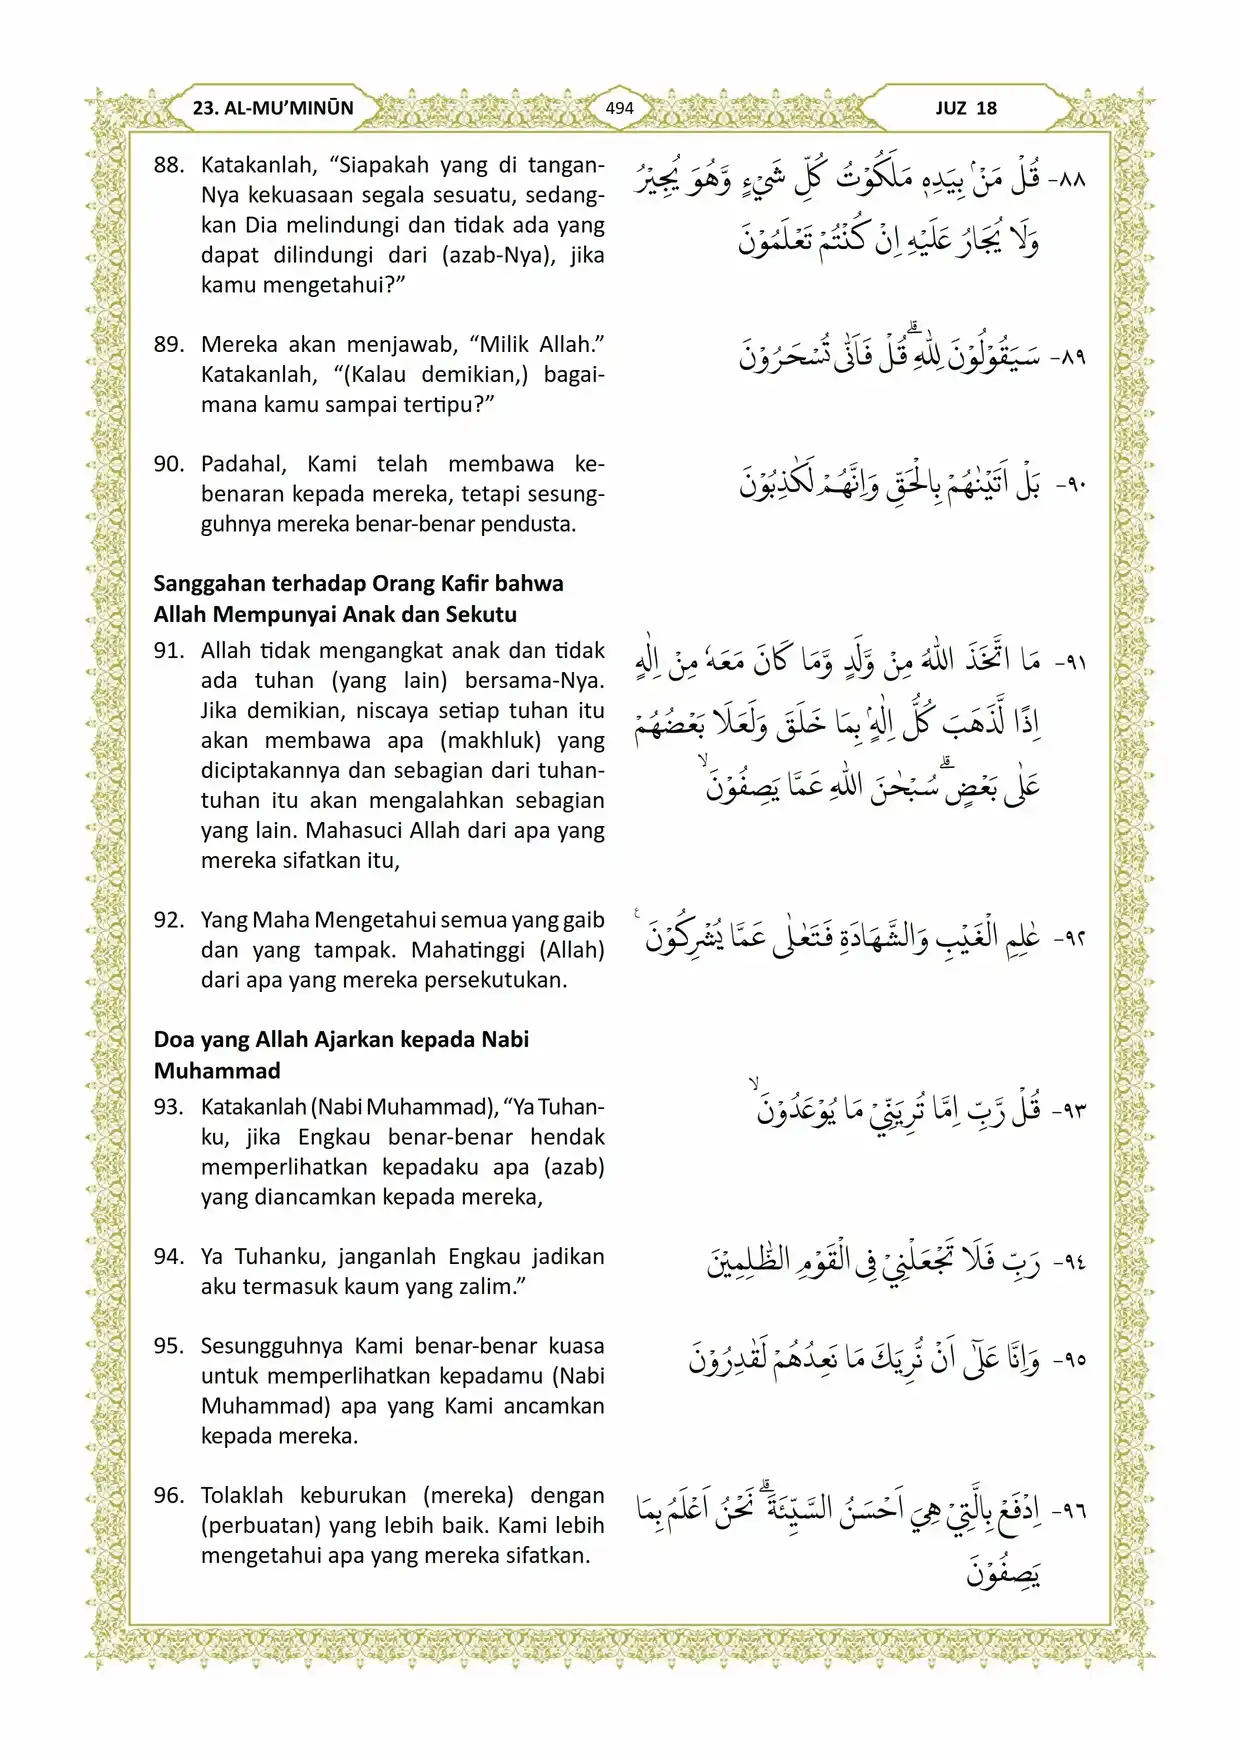 23. AL-MU’MINŪN
494
JUZ 18
88. Katakanlah, “Siapakah yang di tangan-
Nya kekuasaan segala sesuatu, sedang-
kan Dia melindungi dan tidak ada yang
dapat dilindungi dari (azab-Nya), jika
kamu mengetahui?”
٨٨- قُلْ مَنْۢ بِيَدِهٖ مَلَكُوْتُ كُلِّ شَيْءٍ وَّهُوَ يُجِيْرُ
وَلَا يُجَارُ عَلَيْهِ اِنْ كُنْتُمْ تَعْلَمُوْنَ
89. Mereka akan menjawab, “Milik Allah.”
Katakanlah, “(Kalau demikian,) bagai-
mana kamu sampai tertipu?”
٨٩- سَيَقُوْلُوْنَ لِلّٰهِ ۗقُلْ فَاَنّٰى تُسْحَرُوْنَ
90. Padahal, Kami telah membawa ke-
benaran kepada mereka, tetapi sesung-
guhnya mereka benar-benar pendusta.
٩٠- بَلْ اَتَيْنٰهُمْ بِالْحَقِّ وَاِنَّهُمْ لَكٰذِبُوْنَ
Sanggahan terhadap Orang Kafir bahwa
Allah Mempunyai Anak dan Sekutu
91. Allah tidak mengangkat anak dan tidak
ada tuhan (yang lain) bersama-Nya.
Jika demikian, niscaya setiap tuhan itu
akan membawa apa (makhluk) yang
diciptakannya dan sebagian dari tuhan-
tuhan itu akan mengalahkan sebagian
yang lain. Mahasuci Allah dari apa yang
mereka sifatkan itu,
٩١- مَا اتَّخَذَ اللّٰهُ مِنْ وَّلَدٍ وَّمَا كَانَ مَعَهٗ مِنْ اِلٰهٍ
اِذًا لَّذَهَبَ كُلُّ اِلٰهٍۢ بِمَا خَلَقَ وَلَعَلَا بَعْضُهُمْ
عَلٰى بَعْضٍۗ سُبْحٰنَ اللّٰهِ عَمَّا يَصِفُوْنَۙ
92. Yang Maha Mengetahui semua yang gaib
dan yang tampak. Mahatinggi (Allah)
dari apa yang mereka persekutukan.
٩٢- عٰلِمِ الْغَيْبِ وَالشَّهَادَةِ فَتَعٰلٰى عَمَّا يُشْرِكُوْنَ ࣖ
Doa yang Allah Ajarkan kepada Nabi
Muhammad
93. Katakanlah (Nabi Muhammad), “Ya Tuhan-
ku, jika Engkau benar-benar hendak
memperlihatkan kepadaku apa (azab)
yang diancamkan kepada mereka,
٩٣- قُلْ رَّبِّ اِمَّا تُرِيَنِّيْ مَا يُوْعَدُوْنَۙ
94. Ya Tuhanku, janganlah Engkau jadikan
aku termasuk kaum yang zalim.”
٩٤- رَبِّ فَلَا تَجْعَلْنِيْ فِى الْقَوْمِ الظّٰلِمِيْنَ
95. Sesungguhnya Kami benar-benar kuasa
untuk memperlihatkan kepadamu (Nabi
Muhammad) apa yang Kami ancamkan
kepada mereka.
٩٥- وَاِنَّا عَلٰٓى اَنْ نُّرِيَكَ مَا نَعِدُهُمْ لَقٰدِرُوْنَ
96. Tolaklah keburukan (mereka) dengan
(perbuatan) yang lebih baik. Kami lebih
mengetahui apa yang mereka sifatkan.
٩٦- اِدْفَعْ بِالَّتِيْ هِيَ اَحْسَنُ السَّيِّئَةَۗ نَحْنُ اَعْلَمُ بِمَا
يَصِفُوْنَ